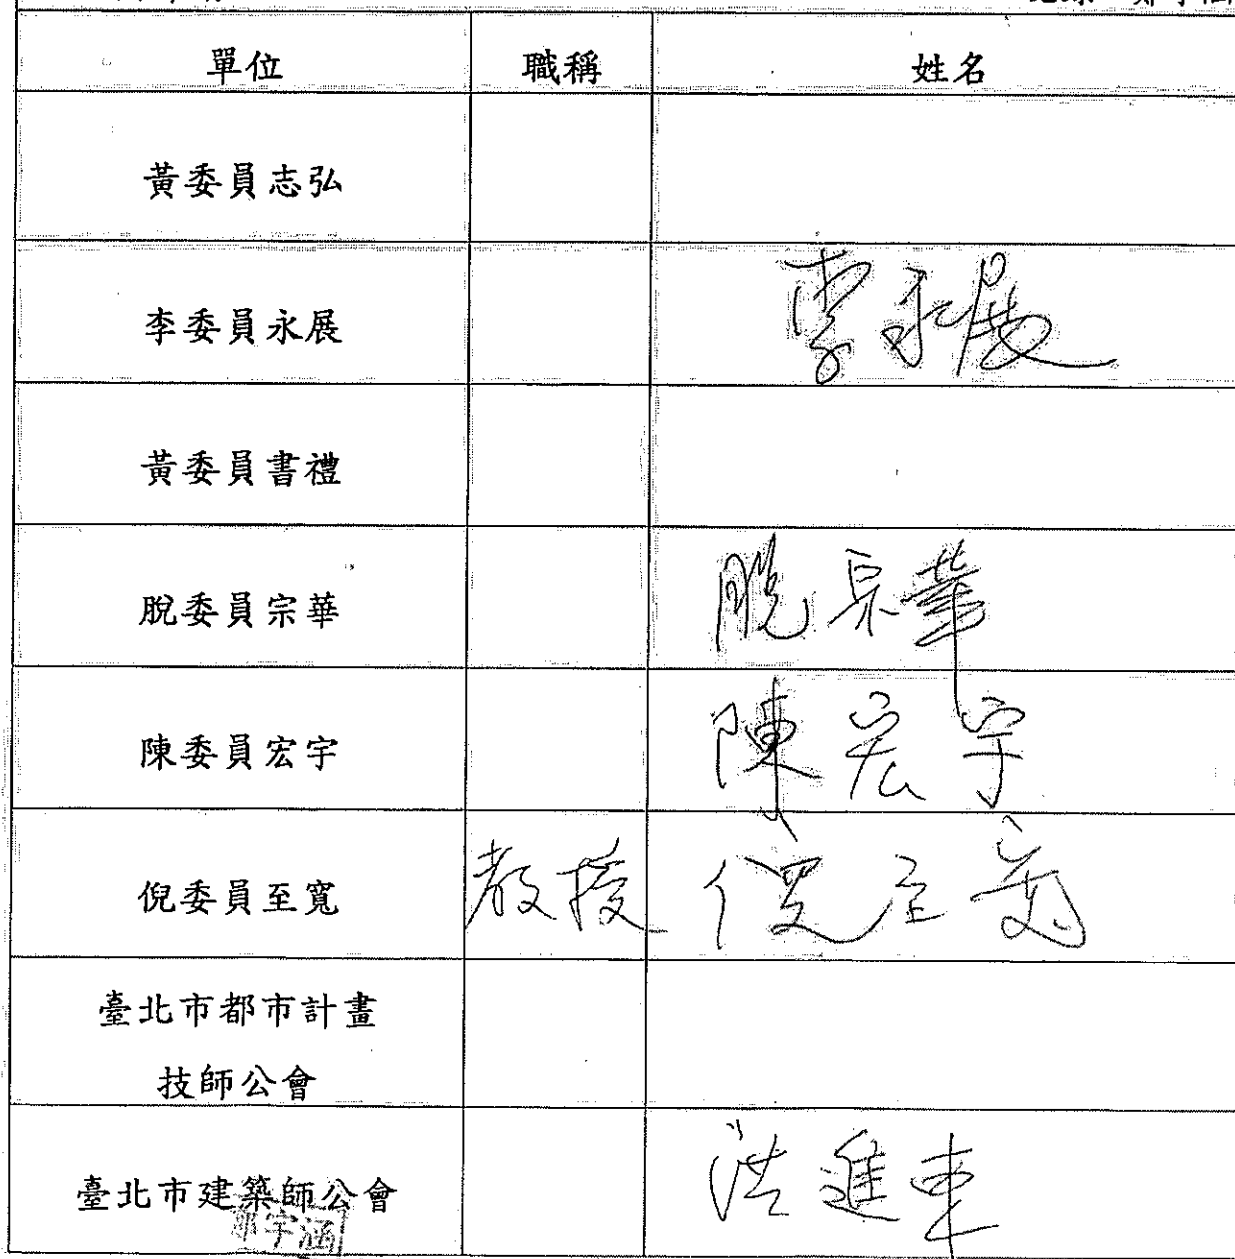 單位 職稱 姓名
黃委員志弘
李委員永展 李永展
黃委員書禮
脫委員宗華 脫宗華
陳委員宏宇 陳宏宇
倪委員至寬 教授 倪至寬
臺北市都市計畫
技師公會
臺北市建築師公會 洪進東
宇涵